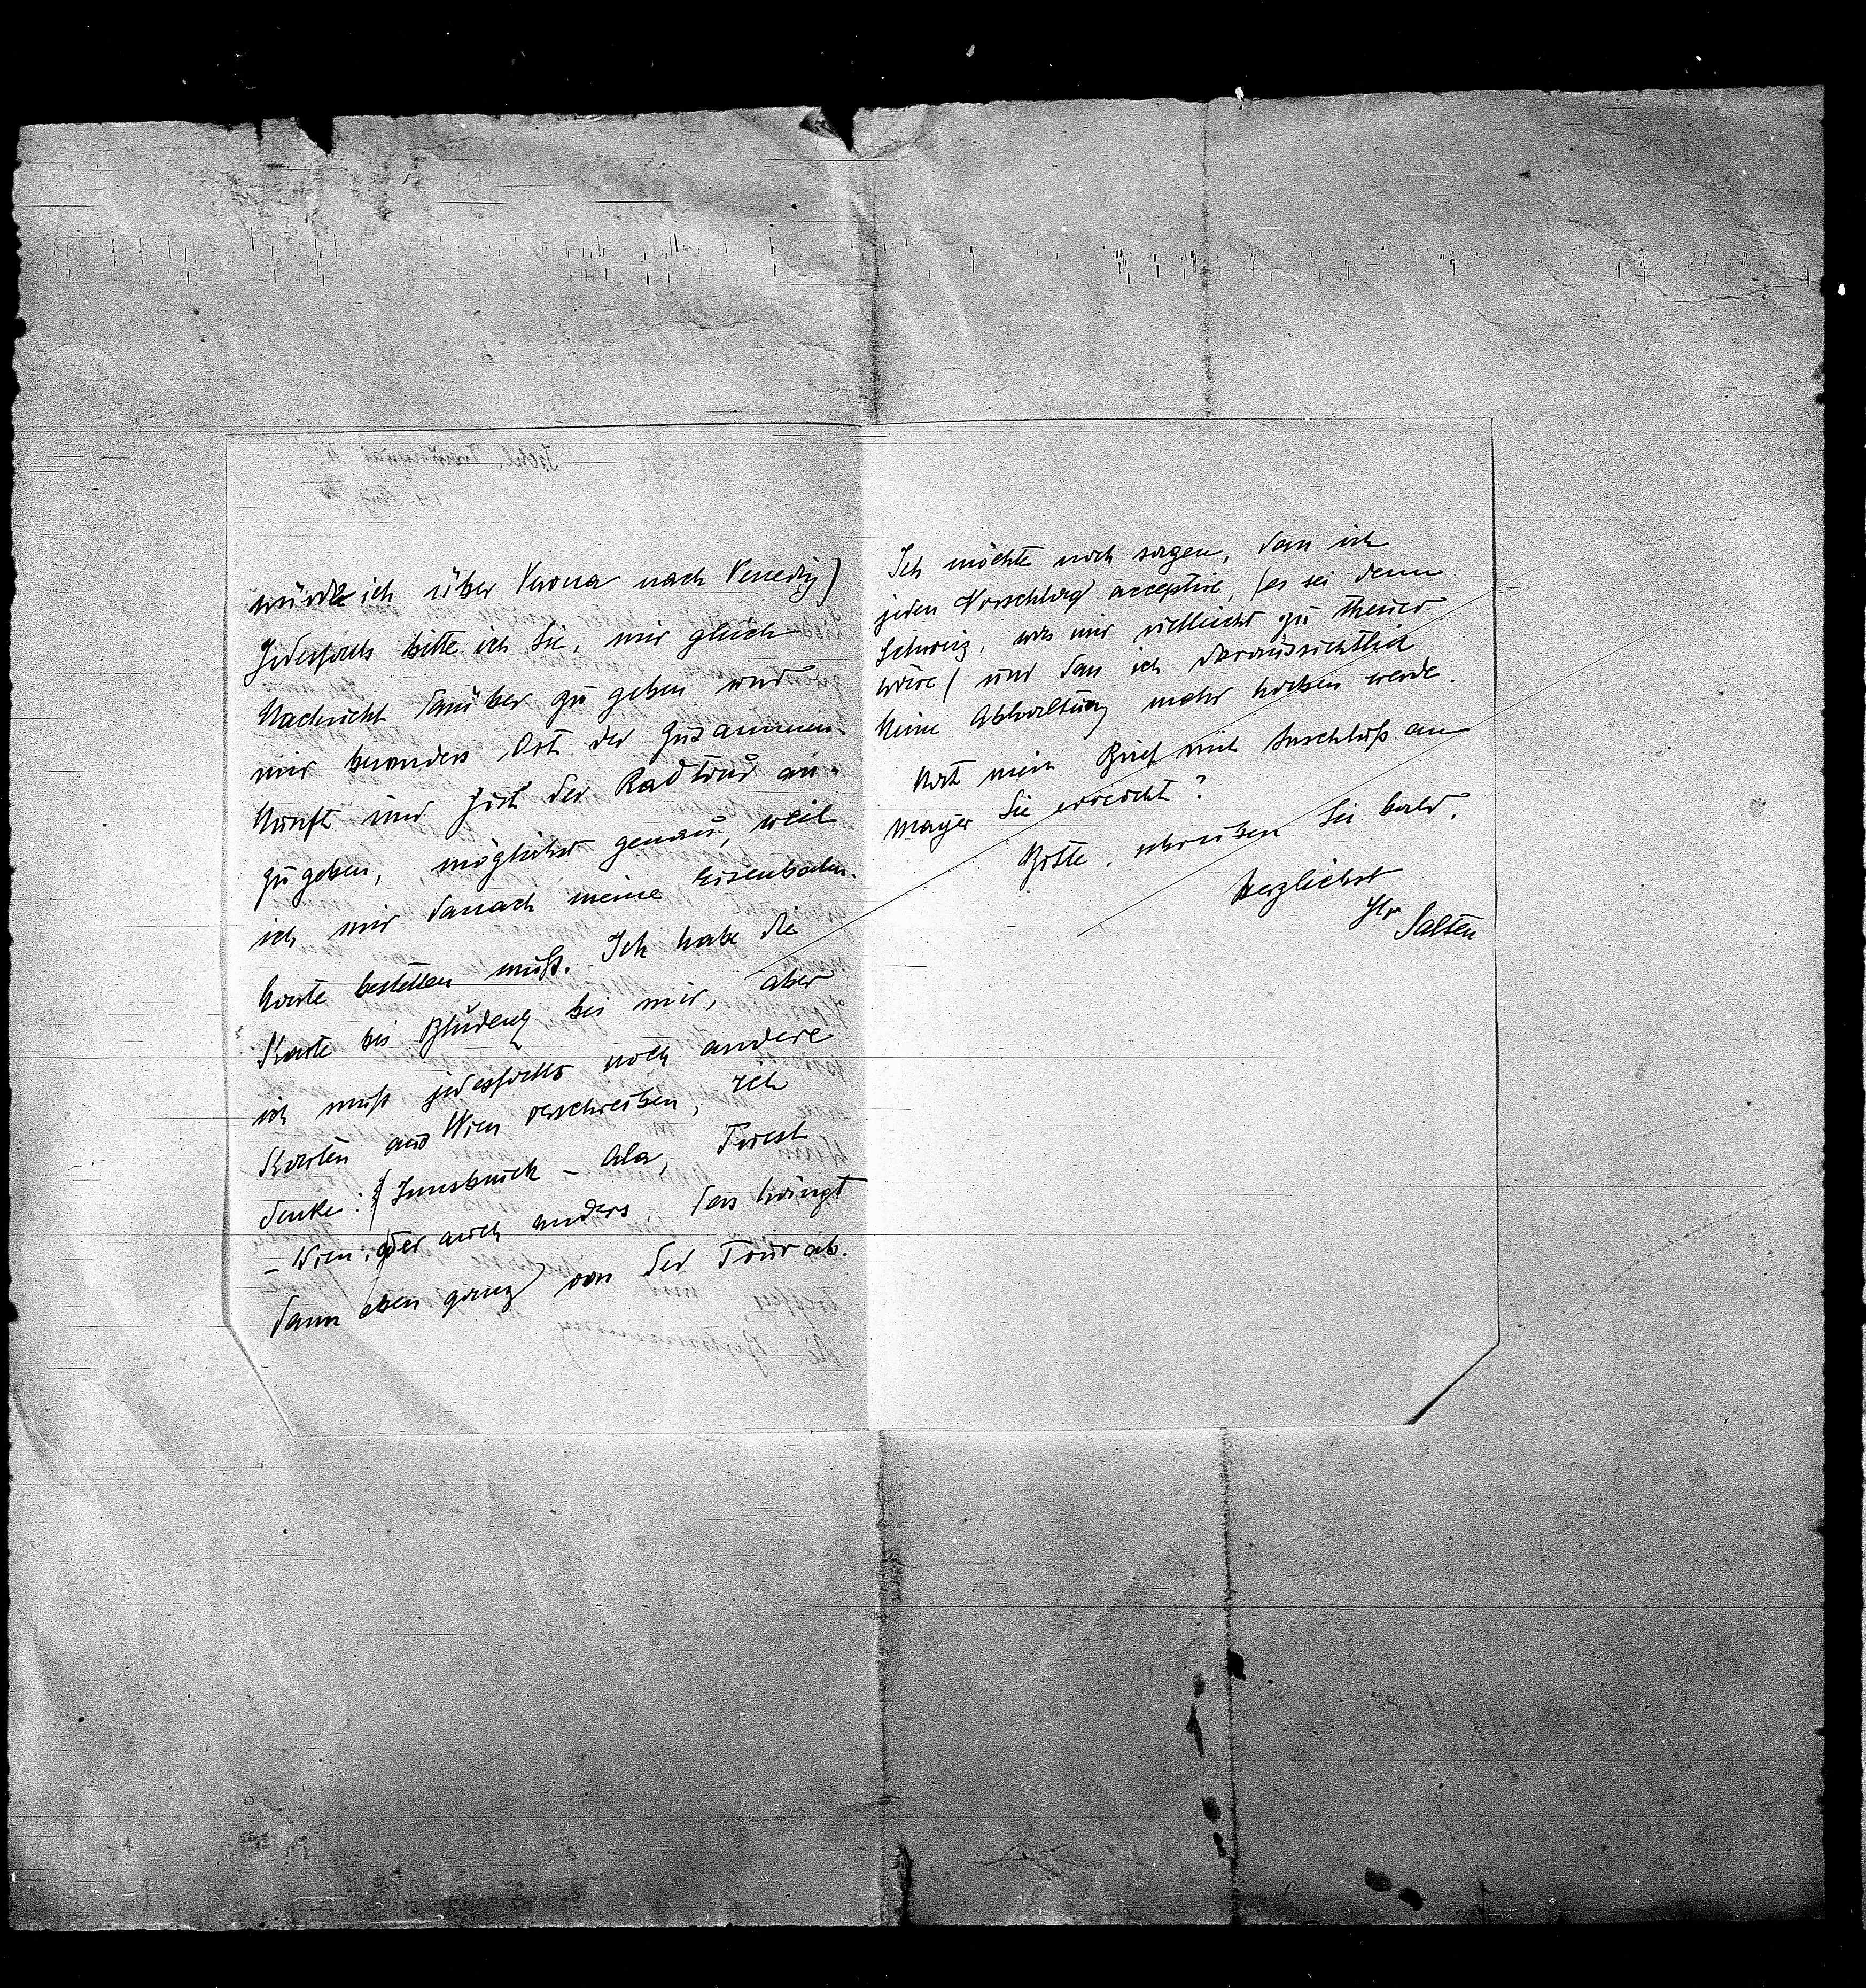 würde ich über Verona nach Venedig)
Jedesfalls bitte ich Sie, mir gleich
Nachricht darüber zu geben und
mir besonders Ort der Zusammen-
kunft und Ziel der Radtour an-
zugeben, möglichst genau, weil
ich mir danach meine Eisenbahn-
karte bestellen muß. Ich habe die
Karte bis Bludenz bei mir, aber
ich muß jedesfalls noch andere
Karten aus Wien verschreiben, ich
denke: Innsbruck – Ala, Triest
– Wien; oder auch anders, das hängt
dann eben ganz von der Tour ab.
Ich möchte noch sagen, dass ich
jeden Vorschlag acceptire, (es sei denn
Schweiz, was mir vielleicht zu theuer
wäre) und dass ich voraussichtlich
keine Abhaltung mehr haben werde.
Hat mein Brief mit Einschluß an
Mayer Sie erreicht?
Bitte, schreiben Sie bald.
Herzlichst
Ihr
Salten